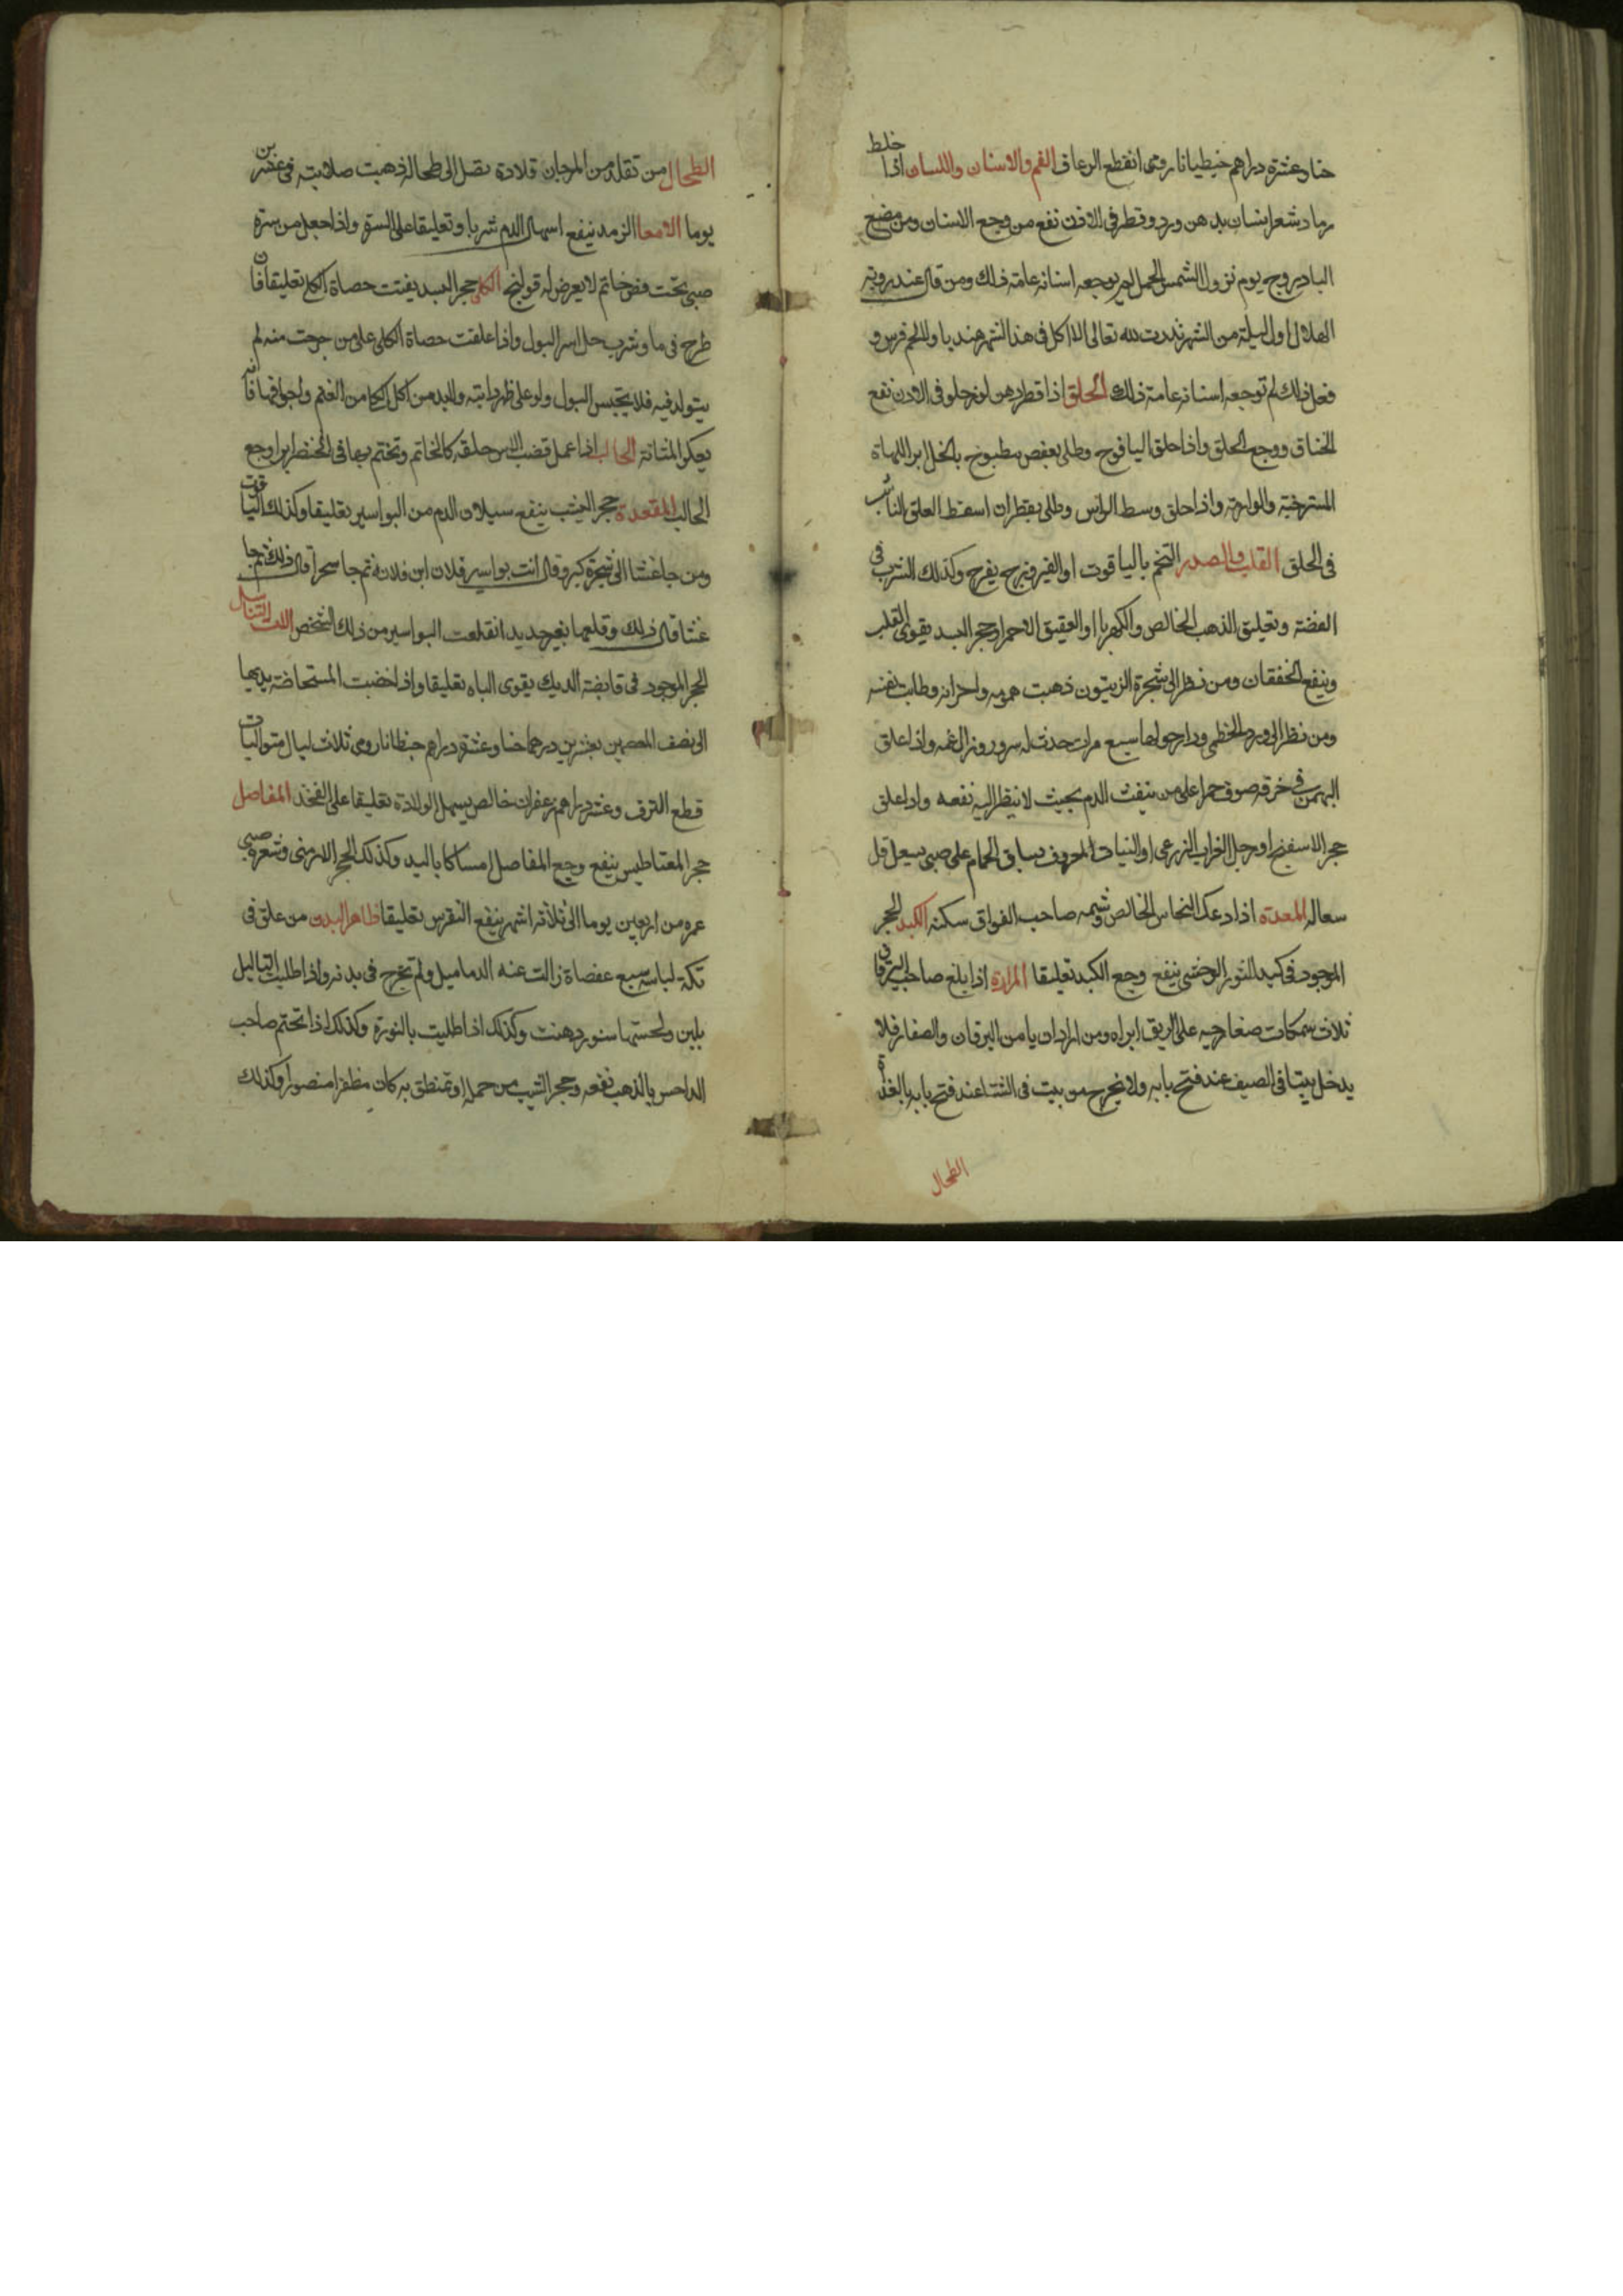 حنا وعشرة دراهم جنطيانا رومى انقطع الرعاف الفم والاسنان واللسان اذا خلط
رماد شعر انسان بدهن ورد وقطر فى الاذن نفع من وجع الاسنان ومن مضغ
البادروج يوم نزول الشمس الحمل لم يوجعه اسنانه عامة ذلك ومن قال عند رويته
الهلال اول ليلة من الشهر نذرت لله تعالى الا اكل فى هذا الشهر هندبا ولا لحم فرس و
فعل ذلك لم توجعه اسنانه عامة ذلك الحلق اذا قطر دهن لوز حلو فى الاذن نفع
الخناق ووجع الحلق واذا حلق اليافوخ وطلى بعفص مطبوخ بالخل ابرا اللهاة
المسترخية والوارمة واذا حلق وسط الراس وطلى بقطران اسقط العلق الناشب
فى الحلق القلب والصدر التختم بالياقوت او الفيروزج يفرح وكذلك الشرب فى
الفضة وتعليق الذهب الخالص والكهربا او العقيق الاحمر او حجر اليسد يقوى القلب
وينفع الخفقان ومن نظر الى شجرة الزيتون ذهبت همومه واحزانه وطابت نفسه
ومن نظر الى ورد الخطمى ودار حولها سبع مرات حدث له سرور وزال غمه واذا علق
البهمن فى خرقة صوف حمرا على من ينفث الدم بحيث لا ينظر اليه نفعه واذا علق
حجر الاسفنج او رجل الغراب الزرعى او النبات المعروف بساق الحمام على صبى يسعل قل
سعاله المعدة اذا دعك النحاس الخالص وشمه صاحب الفواق سكنه الكبد الحجر
الموجود فى كبد الثور الوحشى ينفع وجع الكبد تعليقا المرارة اذا بلع صاحب اليرقان
ثلاث سمكات صغار حيه على الريق ابراه ومن اراد ان يامن اليرقان والصفار فلا
يدخل بيتا فى الصيف عند فتح بابه ولا يخرج من بيت فى الشتا عند فتح بابه بالغداة
الطحال
الطحال من تقلد من المرجان قلادة تصل الى طحاله ذهبت صلابته فى عشرين
يوما الامعا الزمرد ينفع اسهال الدم شربا وتعليقا على السرة واذا جعل من سرة
صبى تحت فص خاتم لا يعرض له قولنج الكلى حجر اليسد يفتت حصاة الكلى تعليقا فان
طرح فى ما وشرب حل اسر البول واذا علقت حصاة الكلى على من خرجت منه لم
يتولد فيه فلا يحتبس البول ولو على ظهر دابته ولابد من اكل الكلى من الغنم واجوافها فانه
يعكر المثانة الحالب اذا عمل قضيب الاس حلقه كالخاتم وتختم بها فى الخنصر ابرا وجع
الحالب المقعدة حجر اليشب ينفع سيلان الدم من البواسير تعليقا وكذلك الياقوت
ومن جا عشا الى شجرة كبر وقال انت بواسير فلان ابن فلانة ثم جا سحرا قال ذلك ثم جا
عشا قال ذلك وقلعها بغير حديد انقلعت البواسير من ذلك الشخص الات التناسل
الحجر الموجود فى قانصة الديك يقوى الباه تعليقا واذا خضبت المستحاضة يديها
الى نصف المعصمين بعشرين درهما حنا وعشرة دراهم جنطيانا رومى ثلاث ليال متواليات
قطع النزف وعشرة دراهم زعفران خالص يسهل الولادة تعليقا على الفخذ المفاصل
حجر المغناطيس ينفع وجع المفاصل امساكا باليد وكذلك الحجر الارمنى وشعر صبى
عمره من اربعين يوما الى ثلاثة اشهر ينفع النقرس تعليقا ظاهر البدن من علق فى
تكة لباسه سبع عفصاة زالت عنه الدماميل ولم تخرج فى بدنه واذا طليت الثاليل
بلبن ولحستها سنور ذهبت وكذلك اذا طليت بالنورة وكذلك اذا تختم صاحب
الداحس بالذهب نفعه وحجر اليشب من حمله او تمنطق به كان مظفرا منصورا وكذلك